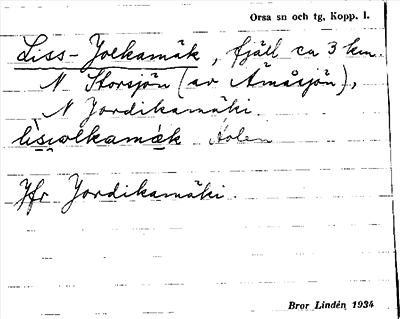 Orsa sn och tg, Kopp. l.
Liss-Jolkamäk, fjäll ca 3 km.
N Storsjön (av Åmåsjön),
N Jordikamäki.
Jfr Jordikamäki.
Bror Lindén 1934